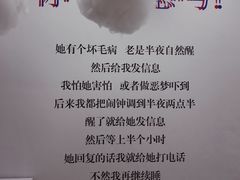 她有个坏毛病 老是半夜自然醒
然后给我发信息
我怕她害怕 或者做恶梦吓到
后来我都把闹钟调到半夜两点半
醒了就给她发信息
然后等上半个小时
她回复的话我就给她打电话
不然我再继续睡